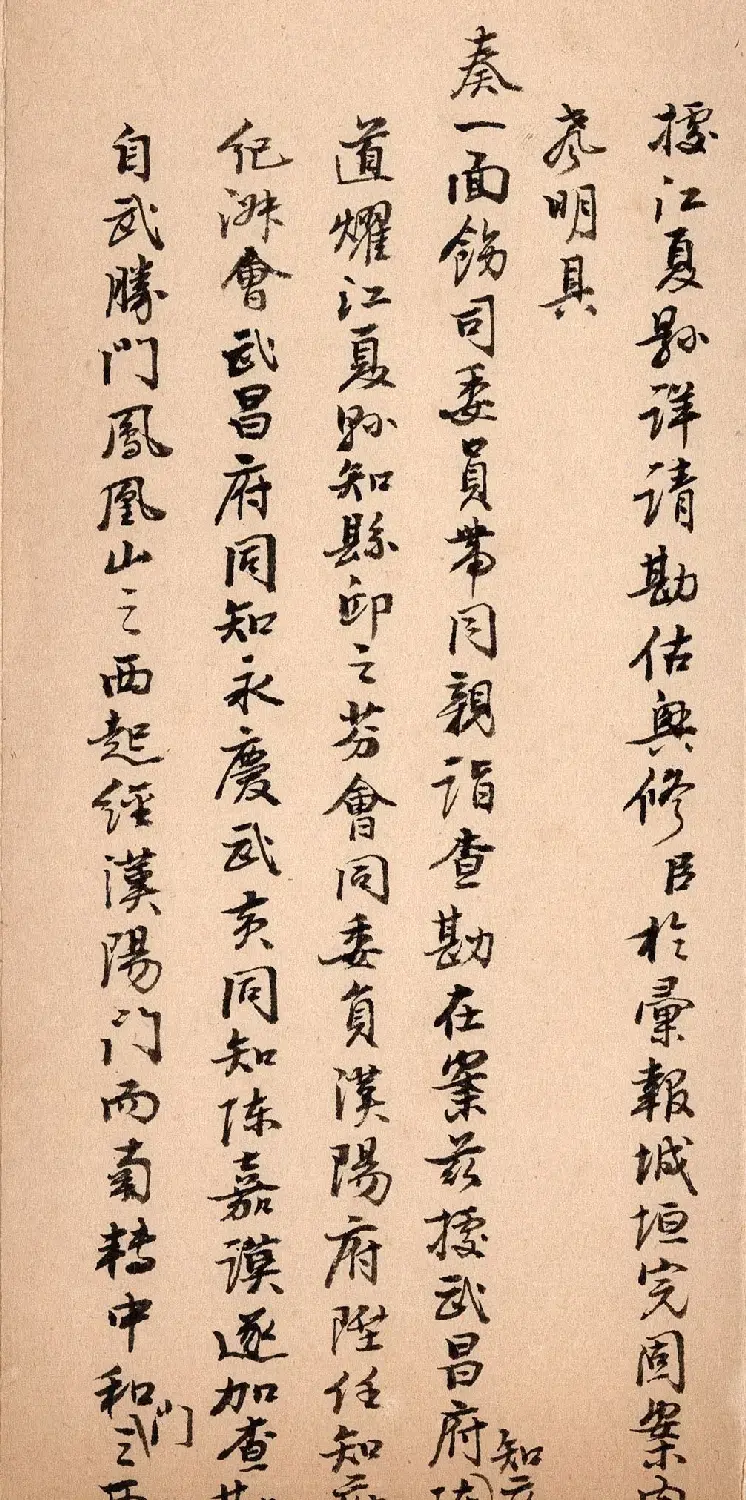 據江夏縣詳請勘估興修臣於彙報城垣完固案內
聲明具
奏一面飭司委員帶同親詣查勘在案茲據武昌府知府
道燿江夏縣知縣邱之芬會同委員漢陽府陞任知府
紀淑會武昌府同知永慶武黃同知陳嘉謨逐加查勘
自武勝門鳳凰山之西起經漢陽門而南轉中和門之西